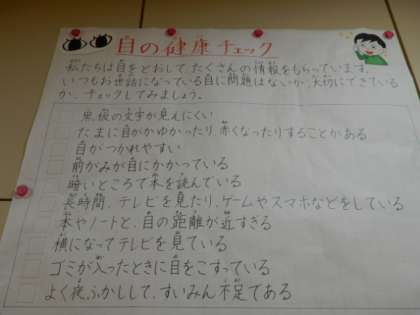 目の健康チェック
私たちは目をとおして、たくさんの情報をもらっています。
いつもお世話になっている目に問題はないか、大切にできている
か、チェックしてみましょう。
黒板の文字が見えにくい
たまに目がかゆかったり、赤くなったりすることがある
目がつかれやすい
前がみが目にかかっている
暗いところで本を読んでいる
長時間、テレビを見たり、ゲームやスマホなどをしている
本やノートと、目の距離が近すぎる
横になってテレビを見ている
ゴミが入ったときに目をこすっている
よく夜ふかしして、すいみん不足である